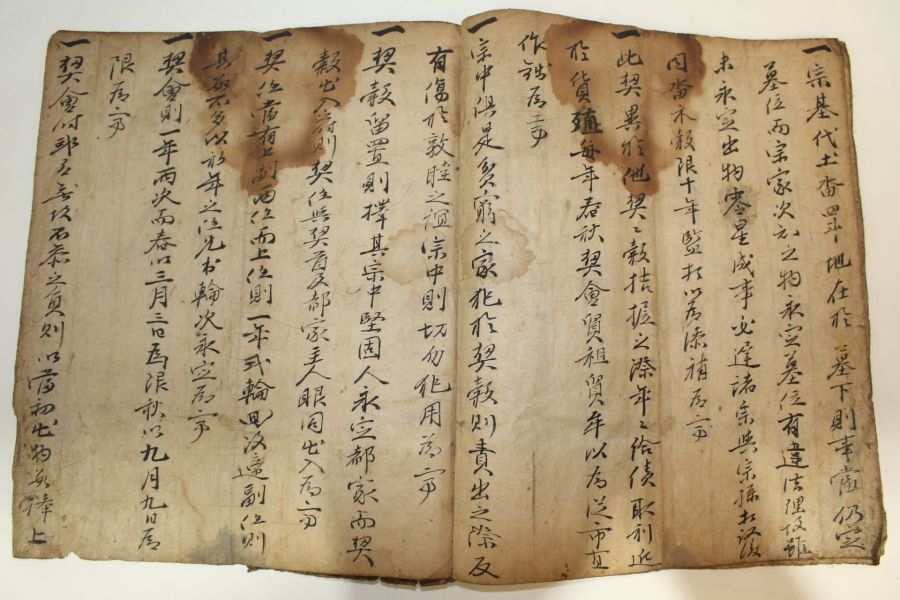 一 宗基代土畓四斗地在於墓下則事當仍定
墓位而宗家次知之物永定墓位有違法理故雖
未永定出物零星成事必遲諸宗與宗孫相議
同畓禾穀限十年監捧以爲添補爲齊
一 此契異於他契契穀拮据之際年年給債取利近
於貨殖每年春秋契會貿租貿牟以爲從市直
作錢爲齊
一 宗中俱是貧窮之家犯於契穀則責出之際反
有傷於敦睦之誼宗中則切勿犯用爲齊
一 契穀留置則擇其宗中堅固人永定都家而契
穀出入時則契任與契首及都家主人眼同出入爲齊
一 契任當有上副兩任而上任則一年式輪回改遞副任則
不 以 年之 先 輪次永定爲齊
一 契會則一年兩次而春以三月三日爲限秋以九月九日爲
限爲齊
一 契會時 無故不參之員則以當初出物 捧上